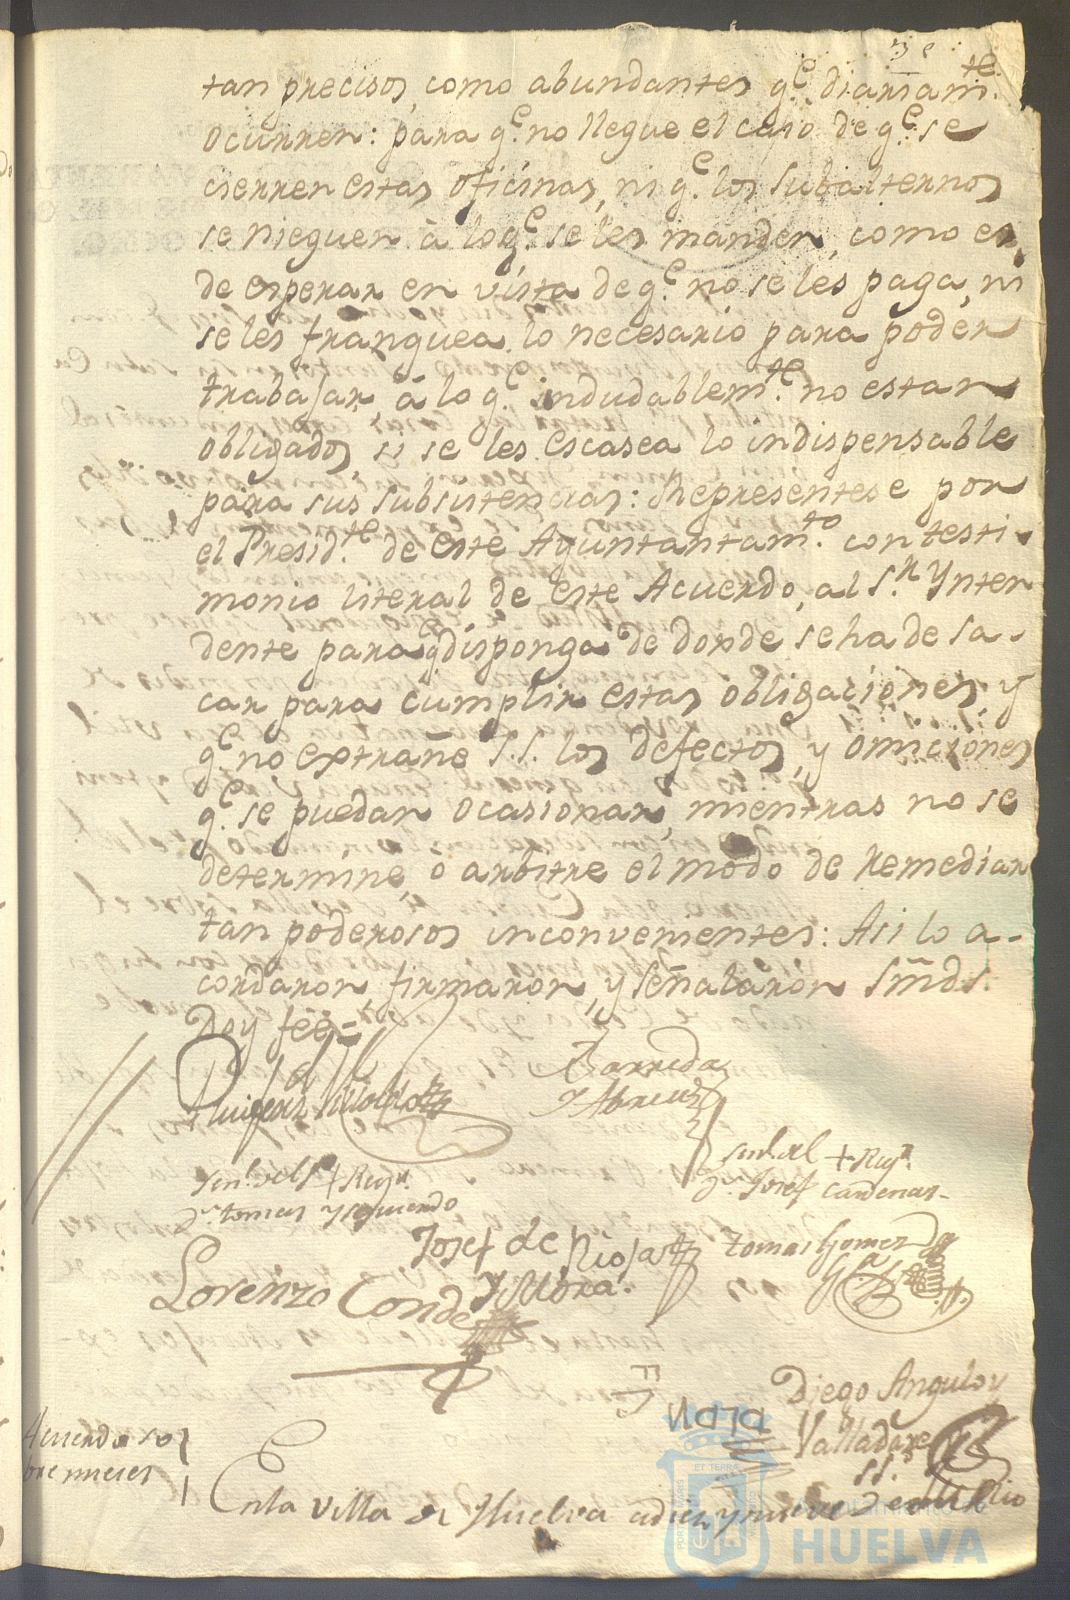 tan precisos, como abundantes q.e diariam.te
Ocurren: para q.e no llegue el caso de q.e se
cierren estas oficinas, ni q.e los subalternos
se nieguen à lo q.e se les manden, como es
de esperar en vista de q.e no se les paga, ni
se les franquea lo necesario para poder
trabajar, à lo q.e indudablem.te no estan
obligados, si se les escasea lo indispensable
para sus subsistencias: Representese por
el Presid.te de este Ayuntantam.to con testi-
monio literal de este Acuerdo, al S.r Ynten
dente para q.e disponga de donde se ha de sa-
car para cumplir estas obligaciones, y
q.e no extrañe S.S. los defectos, y omiciones
q.e se puedan ocasionar, mientras no se
determine, ò arbitre el modo de remediar
tan poderosos inconvenientes: Asi lo a-
cordaron, firmaron, y señalaron Smds.
Doy feè=
Barreda
y Abreu
señ.l del + Reg.r
d.n Josef Cardenas
señ.l del S.r + Reg.r
d.n tomas ysquierdo
Josef de Rioja
y Mora.
tomas Gomez
Lorenzo Conde
Diego Angulo y
Valladares
ss.no
Acuerdo so
bre nieves
En la villa de Huelva a diez y nueve de
Ayuntamiento de
HUELVA